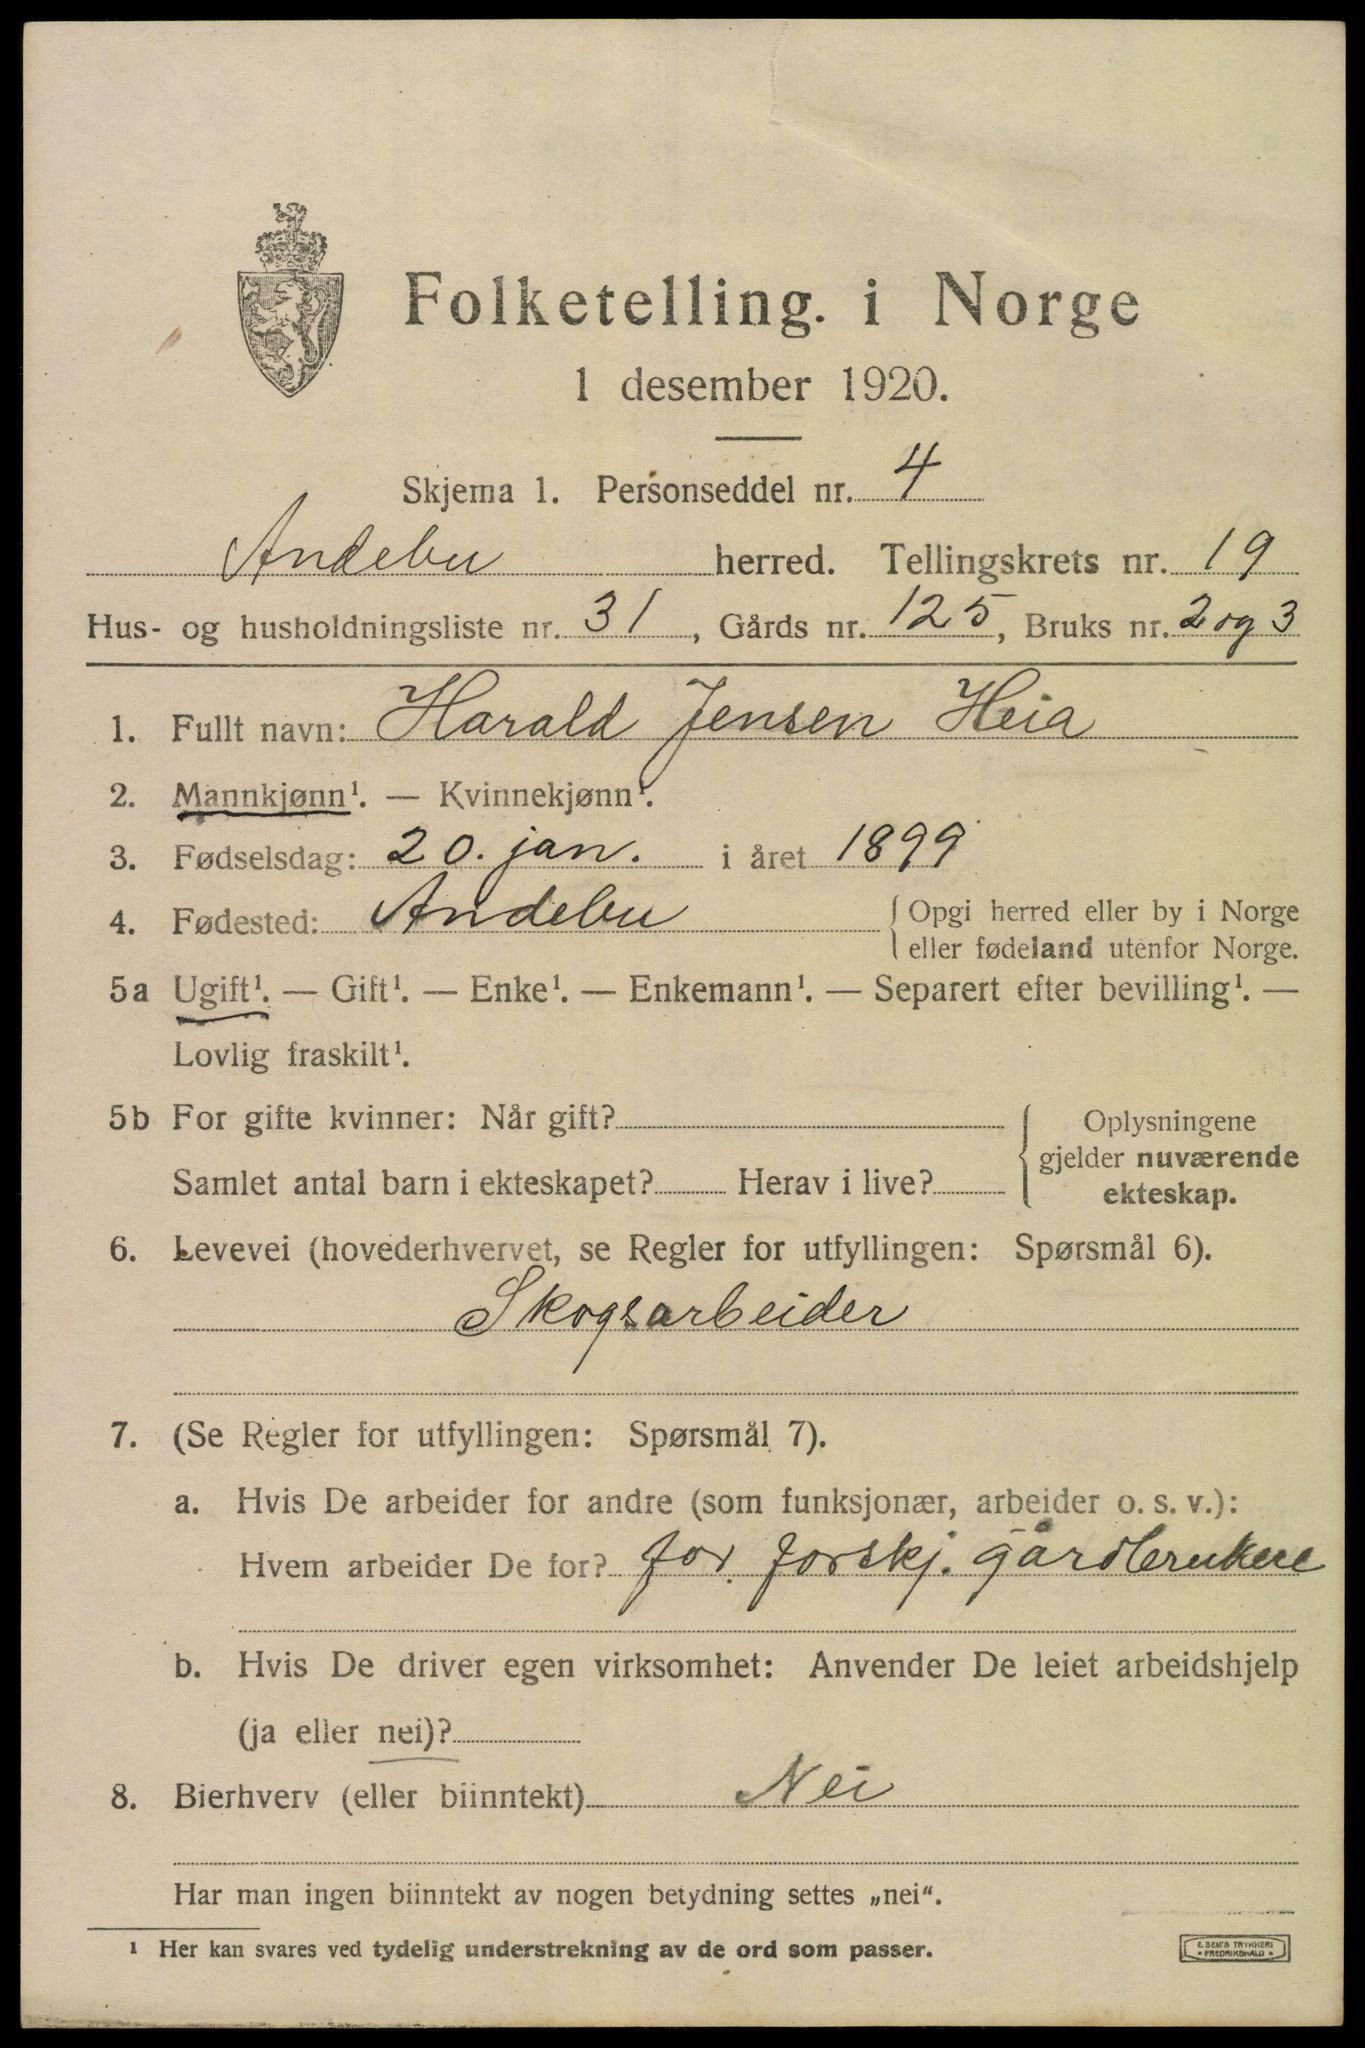 Folketelling. i Norge
1 desember 1920.
Skjema 1. Personseddel nr. 4
Andebu herred. Tellingskrets nr. 19
Hus- og husholdningsliste nr. 31, Gårds nr. 125, Bruks nr. 2 og 3
1. Fullt navn: Harald Jensen Heia
2. Mannkjønn¹. — Kvinnekjønn¹.
3. Fødselsdag: 20. jan. i året 1899
4. Fødested: Andebu { Opgi herred eller by i Norge
eller fødeland utenfor Norge.
5a Ugift¹. — Gift¹. — Enke¹. — Enkemann¹. — Separert efter bevilling¹. —
Lovlig fraskilt¹.
5b For gifte kvinner: Når gift? { Oplysningene
gjelder nuværende
Samlet antal barn i ekteskapet? Herav i live?
ekteskap.
6. Levevei (hovederhvervet, se Regler for utfyllingen: Spørsmål 6).
Skogsarbeider
7. (Se Regler for utfyllingen: Spørsmål 7).
a. Hvis De arbeider for andre (som funksjonær, arbeider o. s. v.):
Hvem arbeider De for? for. forskj. gårdbrukere
b. Hvis De driver egen virksomhet: Anvender De leiet arbeidshjelp
(ja eller nei)?
8. Bierhverv (eller biinntekt) Nei
Har man ingen biinntekt av nogen betydning settes „nei“.
¹ Her kan svares ved tydelig understrekning av de ord som passer.
E. SEM'S TRYKKERI
• FREDRIKSHALD •